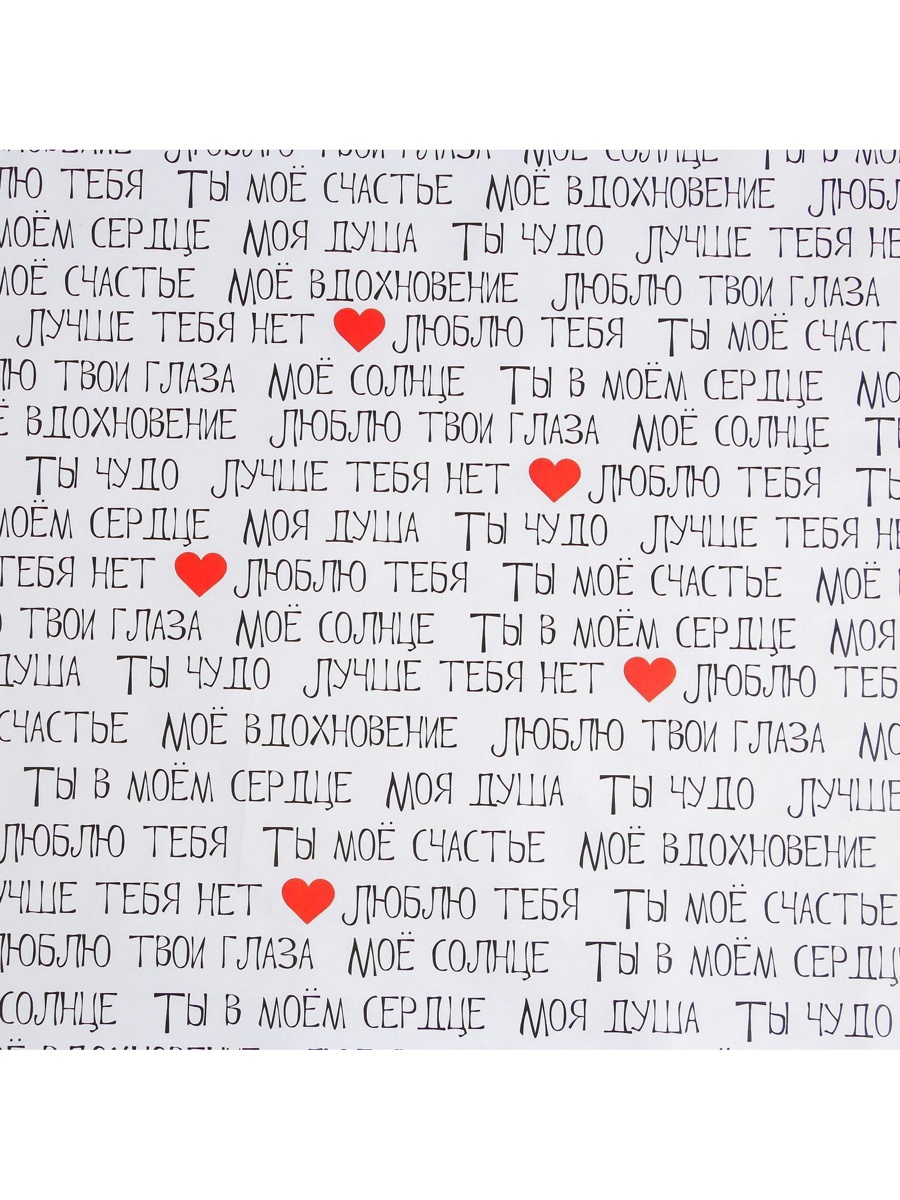 ЛЮБЛЮ ТВОИ ГЛАЗА МОЁ СОЛНЦЕ ТЫ В
ТЕБЯ ТЫ МОЁ СЧАСТЬЕ МОЁ ВДОХНОВЕНИЕ
МОЁМ СЕРДЦЕ МОЯ ДУША ТЫ ЧУДО ЛУЧШЕ ТЕБЯ НЕ
МОЁ СЧАСТЬЕ МОЁ ВДОХНОВЕНИЕ ЛЮБЛЮ ТВОИ ГЛАЗА
ЛУЧШЕ ТЕБЯ НЕТ ЛЮБЛЮ ТЕБЯ ТЫ МОЁ СЧАСТ
ЛЮ ТВОИ ГЛАЗА МОЁ СОЛНЦЕ ТЫ В МОЁМ СЕРДЦЕ МО
Ё ВДОХНОВЕНИЕ ЛЮБЛЮ ТВОИ ГЛАЗА МОЁ СОЛНЦЕ
ТЫ ЧУДО ЛУЧШЕ ТЕБЯ НЕТ ЛЮБЛЮ ТЕБЯ ТЫ
МОЁМ СЕРДЦЕ МОЯ ДУША ТЫ ЧУДО ЛУЧШЕ ТЕБЯ НЕ
ТЕБЯ НЕТ ЛЮБЛЮ ТЕБЯ ТЫ МОЁ СЧАСТЬЕ МОЁ
ТВОИ ГЛАЗА МОЁ СОЛНЦЕ ТЫ В МОЁМ СЕРДЦЕ МОЯ
ДУША ТЫ ЧУДО ЛУЧШЕ ТЕБЯ НЕТ ЛЮБЛЮ ТЕБ
СЧАСТЬЕ МОЁ ВДОХНОВЕНИЕ ЛЮБЛЮ ТВОИ ГЛАЗА МО
ТЫ В МОЁМ СЕРДЦЕ МОЯ ДУША ТЫ ЧУДО ЛУЧШЕ
ЛЮБЛЮ ТЕБЯ ТЫ МОЁ СЧАСТЬЕ МОЁ ВДОХНОВЕНИЕ
УЧШЕ ТЕБЯ НЕТ ЛЮБЛЮ ТЕБЯ ТЫ МОЁ СЧАСТЬЕ
ЛЮБЛЮ ТВОИ ГЛАЗА МОЁ СОЛНЦЕ ТЫ В МОЁМ СЕРДЦ
СОЛНЦЕ ТЫ В МОЁМ СЕРДЦЕ МОЯ ДУША ТЫ ЧУДО